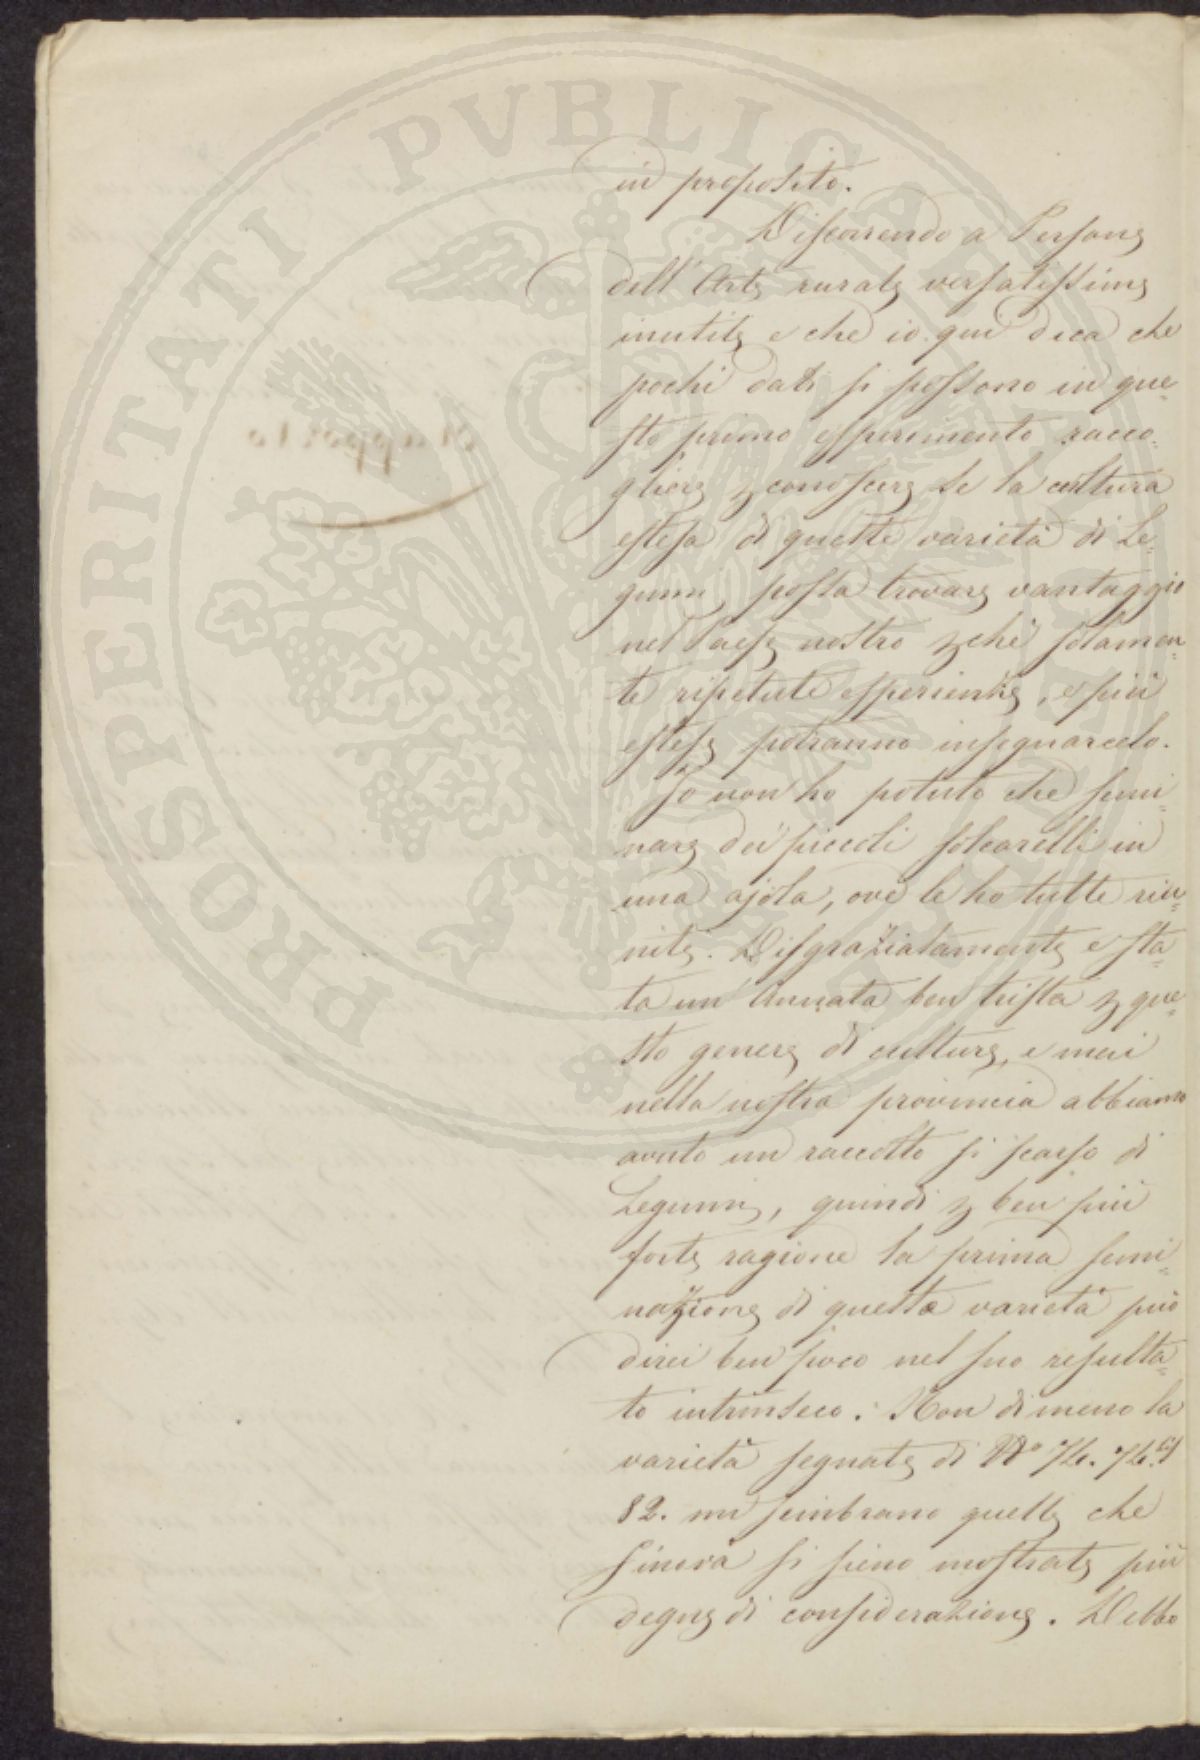 PROSPERITATI PVBLICAE AVGENDAE
in proposito.
Discorrendo a Persone
dell'Arte rurale versatissime
inutile è che io qui dica che
pochi dati si possono in que=
sto primo esperimento racco=
gliere p conoscere se la cultura
estesa di queste varietà di Le=
gumi, possa trovare vantaggio
nel Paese nostro pchè solamen=
te ripetute esperienze, e più
estese potranno insegnarcelo.
Io non ho potuto che semi=
nare dei piccoli solcarelli in
una ajola, ove le ho tutte riu=
nite. Disgraziatamente è sta=
ta un'Annata ben trista p que=
sto genere di culture, e mai
nella nostra provincia abbiamo
avuto un raccolto sì scarso di
Legumi, quindi p ben più
forte ragione la prima semi=
nazione di queste varietà può
dirci ben poco nel suo resulta=
to intrinseco. Non di meno la
varietà segnate di N°
82. mi sembrano quelle che
finora si sieno mostrate più
degne di considerazione. Debbo